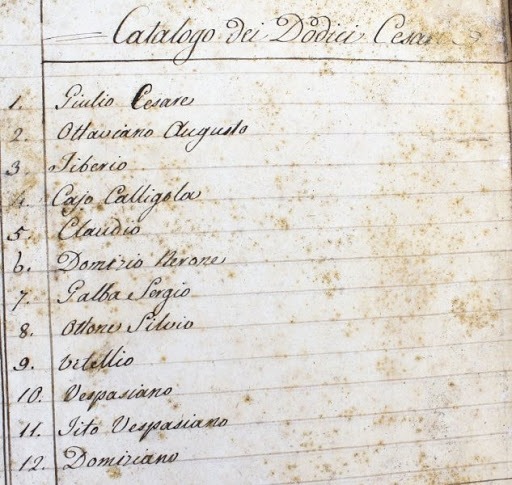 Catalogo dei Dodici Cesari
1. Giulio Cesare
2 Ottaviano Augusto
3. Tiberio
4. Cajo Calligola
5. Claudio
6. Domizio Nerone
7. Galba Sergio
8. Ottone Silvio
9. Vitellio
10. Vespasiano
11. Tito Vespasiano
12. Domiziano